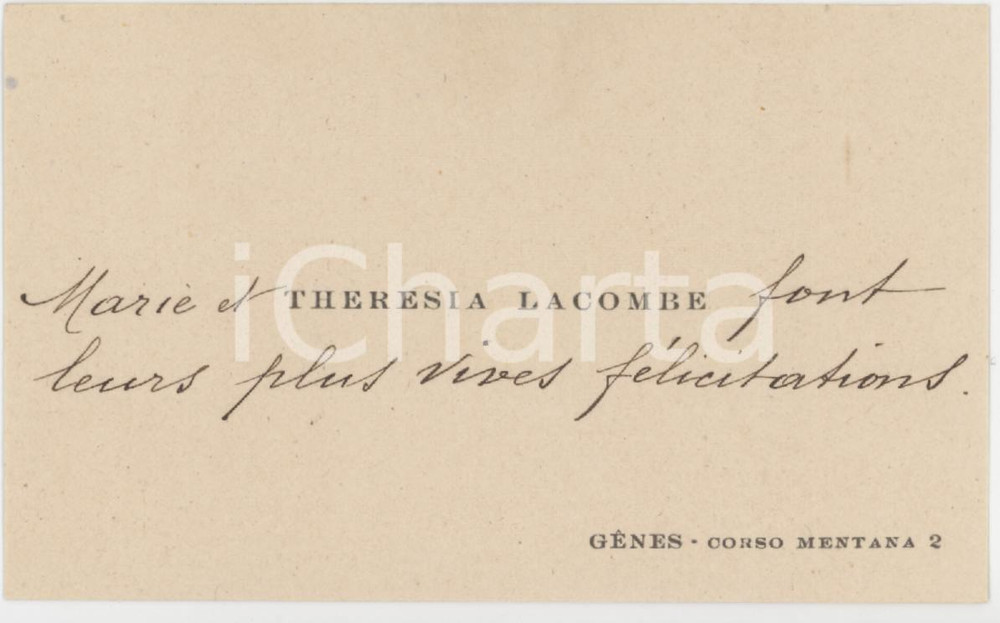 Marie et THERESIA LACOMBE font
leurs plus vives félicitations.
GÊNES - CORSO MENTANA 2
iCharta